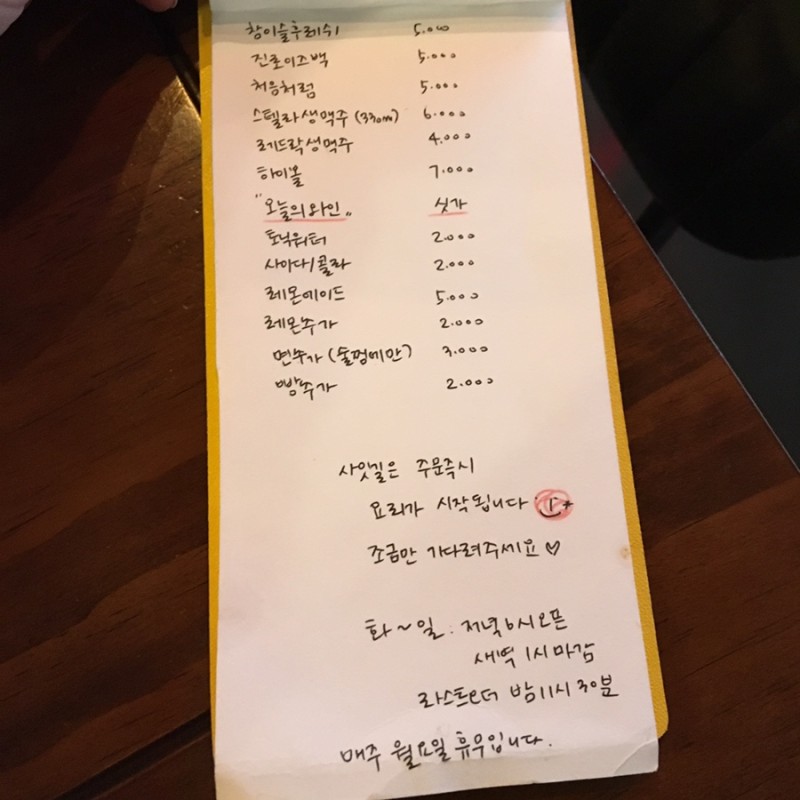 참이슬후레쉬 5.000
진로이즈백 5.000
처음처럼 5.000
스텔라생맥주 (330ml) 6.000
레드락생맥주 4.000
하이볼 7.000
"오늘의와인" 싯가
토닉워터 2.000
사이다/콜라 2.000
레몬에이드 5.000
레몬추가 2.000
면추가 (술찜에만) 3.000
빵추가 2.000
사잇길은 주문즉시
요리가 시작됩니다
조금만 기다려주세요♡
화~일 : 저녁6시오픈
새벽 1시마감
라스트오더 밤11시 30분
매주 월요일 휴무입니다.